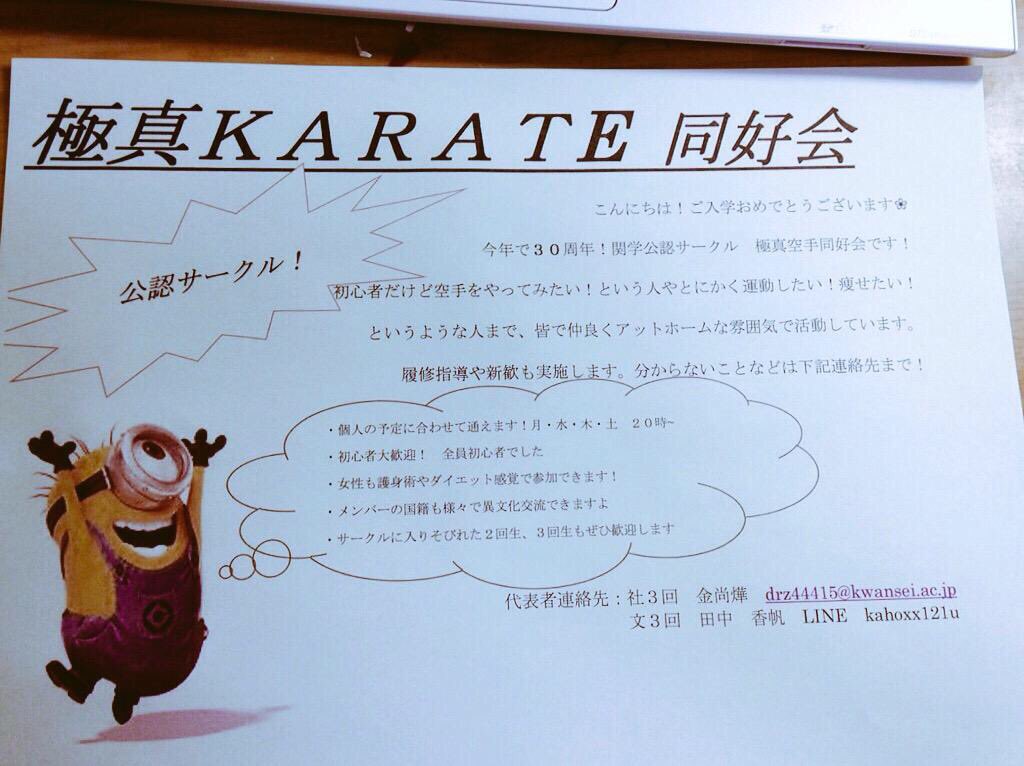 極真ＫＡＲＡＴＥ 同好会
公認サークル！
こんにちは！ご入学おめでとうございます❀
今年で３０周年！関学公認サークル　極真空手同好会です！
初心者だけど空手をやってみたい！という人やとにかく運動したい！痩せたい！
というような人まで、皆で仲良くアットホームな雰囲気で活動しています。
履修指導や新歓も実施します。分からないことなどは下記連絡先まで！
・個人の予定に合わせて通えます！月・水・木・土　２０時~
・初心者大歓迎！　全員初心者でした
・女性も護身術やダイエット感覚で参加できます！
・メンバーの国籍も様々で異文化交流できますよ
・サークルに入りそびれた２回生、３回生もぜひ歓迎します
代表者連絡先：社３回　金尚燁　drz44415@kwansei.ac.jp
文３回　田中　香帆　LINE　kahoxx121u